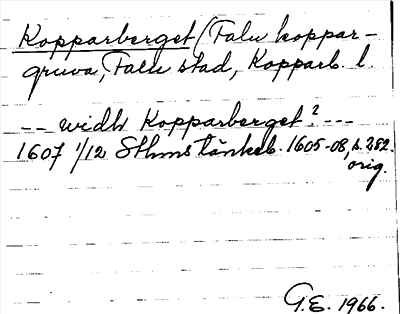 Kopparberget (Falu koppar-
gruva, Falu stad, Kopparb. l.
-- widh Kopparberget? ---
1607 1/12 Sthms tänkeb. 1605-08, s. 282.
orig.
G.E. 1966.